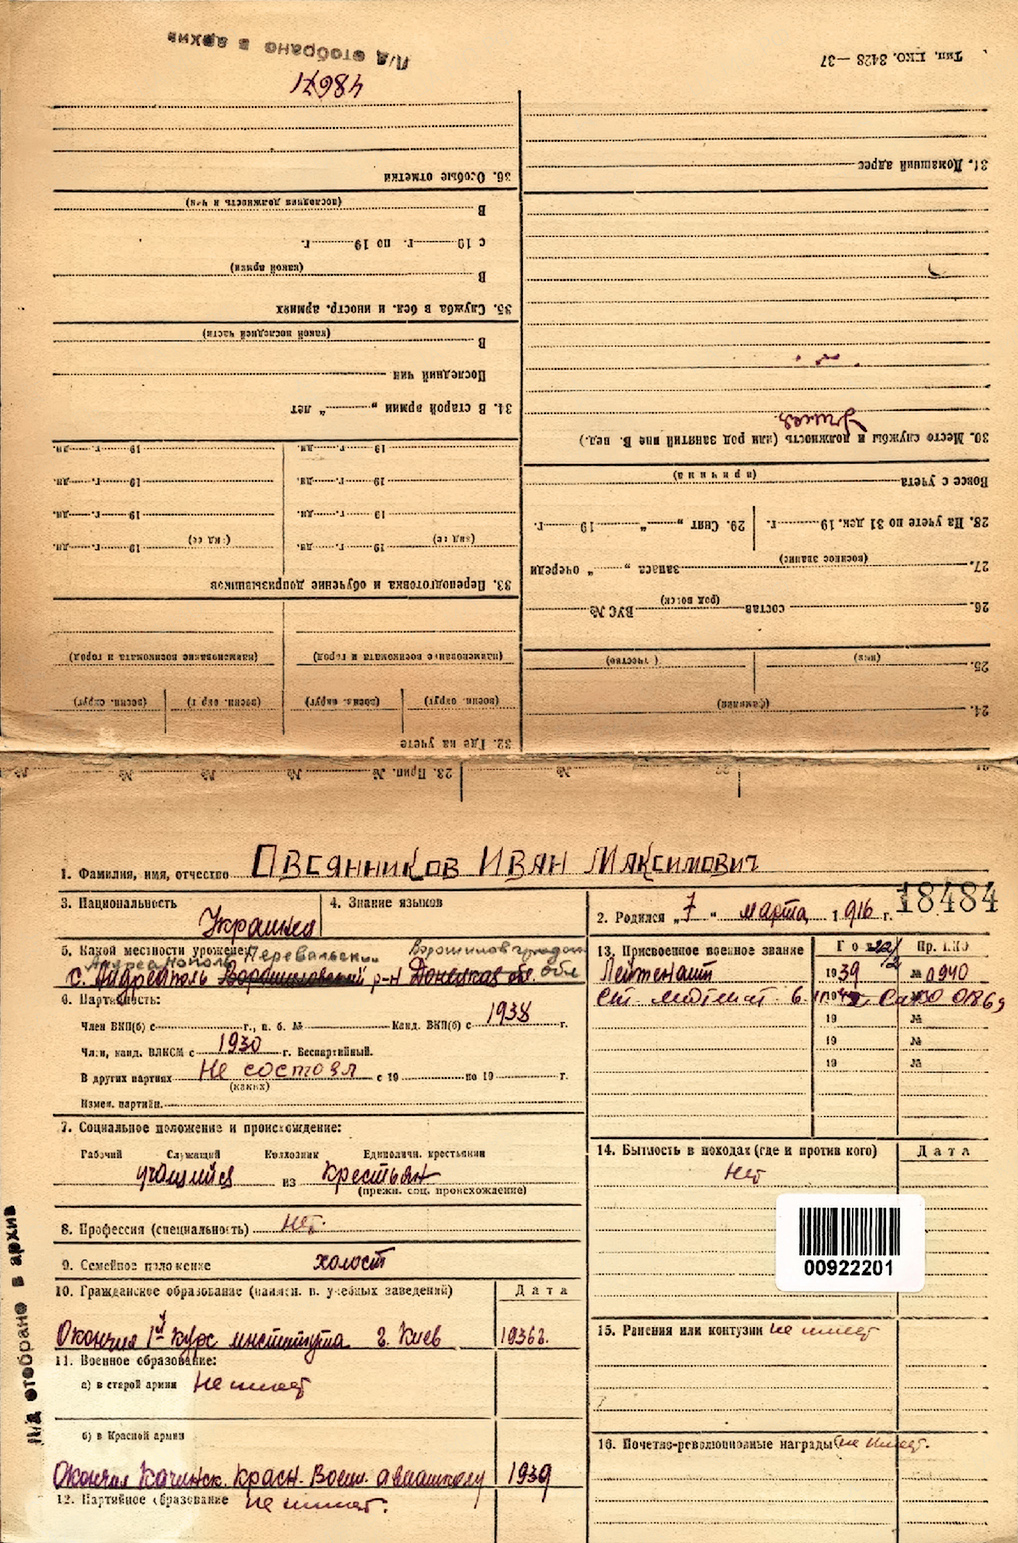 Тип. НКО. 3428—37
31. Домашний адрес
30. Место службы и должность (или род занятий вне В. вед.)
Умер
Воксе с учета
(причина)
28. На учете по 31 дек. 19 г. 29. Снят „ “ 19 г.
27. (военное звание) запаса „ “ очереди
26. состав (род войск) ВУС №
25. (имя) (отчество)
24. (фамилия)
П/д отобрано в архив
48671
36. Особые отметки
В (последняя должность и чин)
с 19 г. по 19 г.
В (какой армии)
35. Служба в бел. и иностр. армиях
В (какой последней части)
Последний чин
34. В старой армии „ “ лет
19 г. дн. 19 г. дн.
19 г. дн. 19 г. дн.
19 г. дн. 19 г. дн.
(вид ее) 19 г. дн. (вид ее) 19 г. дн.
33. Переподготовка и обучение допризывников
(наименование военкомата и город) (наименование военкомата и город)
(военн. округ) (военн. округ) (военн. округ) (военн. округ)
32. Где на учете
23. Прип. № № № № №
1. Фамилия, имя, отчество Овсянников Иван Максимович
3. Национальность Украинец
4. Знание языков
2. Родился „7“ марта 1916 г.
18484
5. Какой местности уроженец Перевальский Ворошиловград
Андреанополь обл
с. Адреаполь Ворошиловский р-н Донецкая обл.
6. Партийность:
Член ВКП(б) с г., п. б. № Канд. ВКП(б) с 1938 г.
Член, канд. ВЛКСМ с 1930 г. Беспартийный.
В других партиях Не состоял с 19 по 19 г.
(каких)
Измен. партийн.
7. Социальное положение и происхождение:
Рабочий Служащий Колхозник Единоличн. крестьянин
учащийся из Крестьян
(прежн. соц. происхождение)
8. Профессия (специальность) Нет.
9. Семейное положение холост
10. Гражданское образование (наимен. в. учебных заведений) Дата
Окончил 1й курс института г. Киев 1936г.
11. Военное образование:
а) в старой армии Не имеет
б) в Красной армии
Окончил Качинск. Красн. Воен. авиашколу 1939
12. Партийное образование не имеет.
13. Присвоенное военное звание Год Пр. НКО
Лейтенант 1939 № 0940
Ст. лейтенант 0869
19 №
19 №
19 №
14. Бытность в походах (где и против кого) Дата
Нет
00922201
15. Ранения или контузии не имеет
16. Почетно-революционные награды не имеет.
П/д отобрано в архив